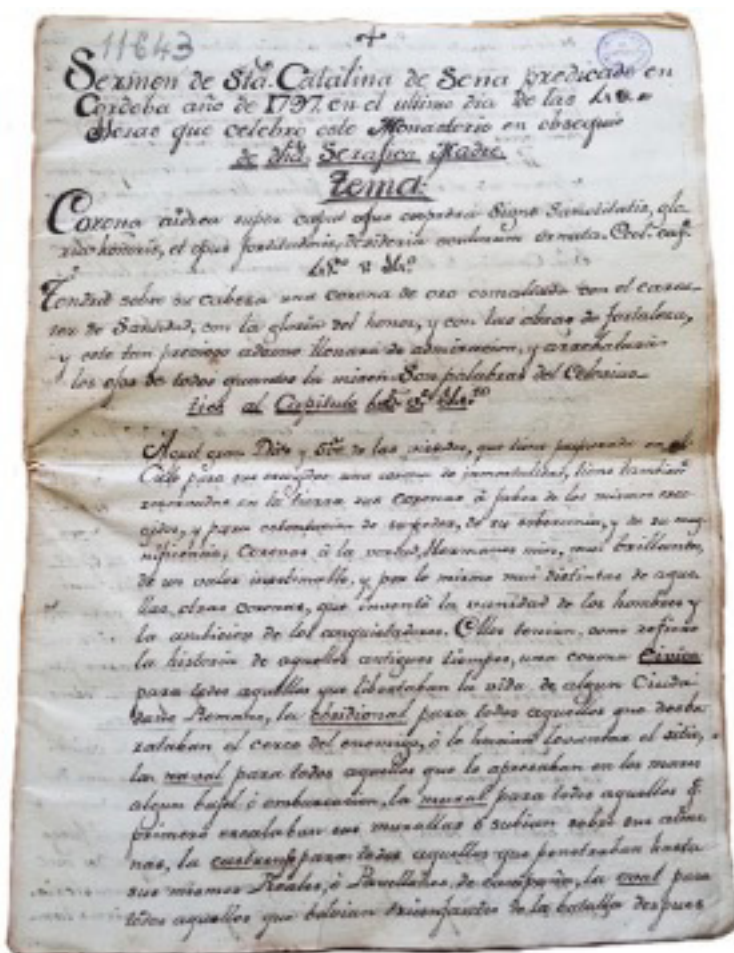 11643
+
Sermon de Sta. Catalina de Sena predicado en
Cordoba año de 1797. en el ultimo dia de las
que celebro este Monasterio en obsequio
de dha. Serafica Madre
Tema.
Corona aurea super caput ejus expressa Signo Sanctitatis, glo-
ria honoris, et opus fortitudinis, desideria oculorum ornata. Eccl. cap.
Tendrá sobre su cabeza una corona de oro esmaltada con el carac-
ter de Santidad, con la gloria del honor, y con las obras de fortaleza,
y este tan precioso adorno llenará de admiracion, y arrebatará
los ojos de todos quantos la miren. Son palabras del Eclesias-
tico al Capitulo
Aquel gran Dios y Sor. de las virtudes, que tiene preparada en el
Cielo para sus escogidos una corona de inmortalidad, tiene tambien
en la tierra sus coronas á favor de los mismos esco-
gidos, y para ostentacion de su poder, de su soberania, y de su mag-
nificencia; Coronas á la verdad, Hermanos mios, mui brillantes,
de un valor inestimable, y por lo mismo mui distintas de aque-
llas otras coronas, que inventó la vanidad de los hombres y
la ambicion de los conquistadores. Ellos tenian, como refiere
la historia de aquellos antiguos tiempos, una corona Civica
para todos aquellos que libertaban la vida de algun Ciuda
dano Romano, la obsidional para todos aquellos que desba
rataban el cerco del enemigo, ó le hacian levantar el sitio,
la naval para todos aquellos que le apresaban en los mares
algun bajel ó embarcacion, la mural para todos aquellos q.
primero escalaban sus murallas ó subian sobre sus alme
nas, la castrense para todos aquellos que penetraban hasta
sus mismos Reales, ó Pavellones de campaña, la oval para
todos aquellos que bolvian triunfantes de la batalla despues